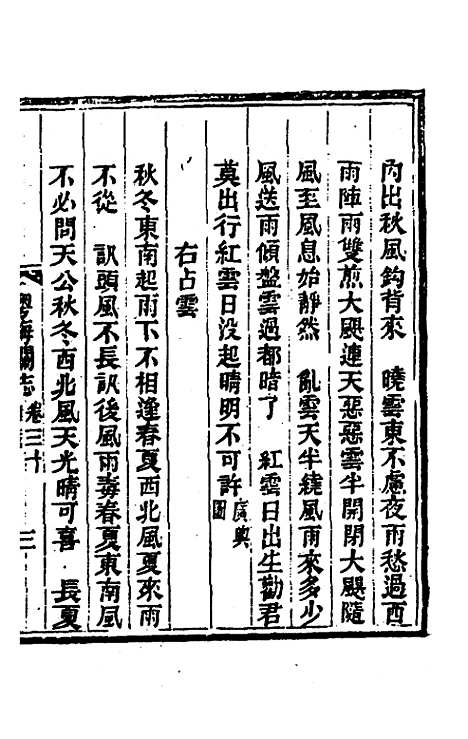 內出秋風鈎背來　曉雲東不慮夜雨愁過西
雨陣雨雙煎大颶連天惡惡雲半開閉大颶隨
風至風息始靜然　亂雲天半繞風雨來多少
風送雨傾盤雲過都暗了　紅雲日出生勸君
莫出行紅雲日没起晴明不可許廣輿圖
右占雲
秋冬東南起雨下不相逢春夏西北風夏來雨
不從　訊頭風不長訊後風雨毒春夏東南風
不必問天公秋冬西北風天光晴可喜　長夏
粵海關志　卷三十　三